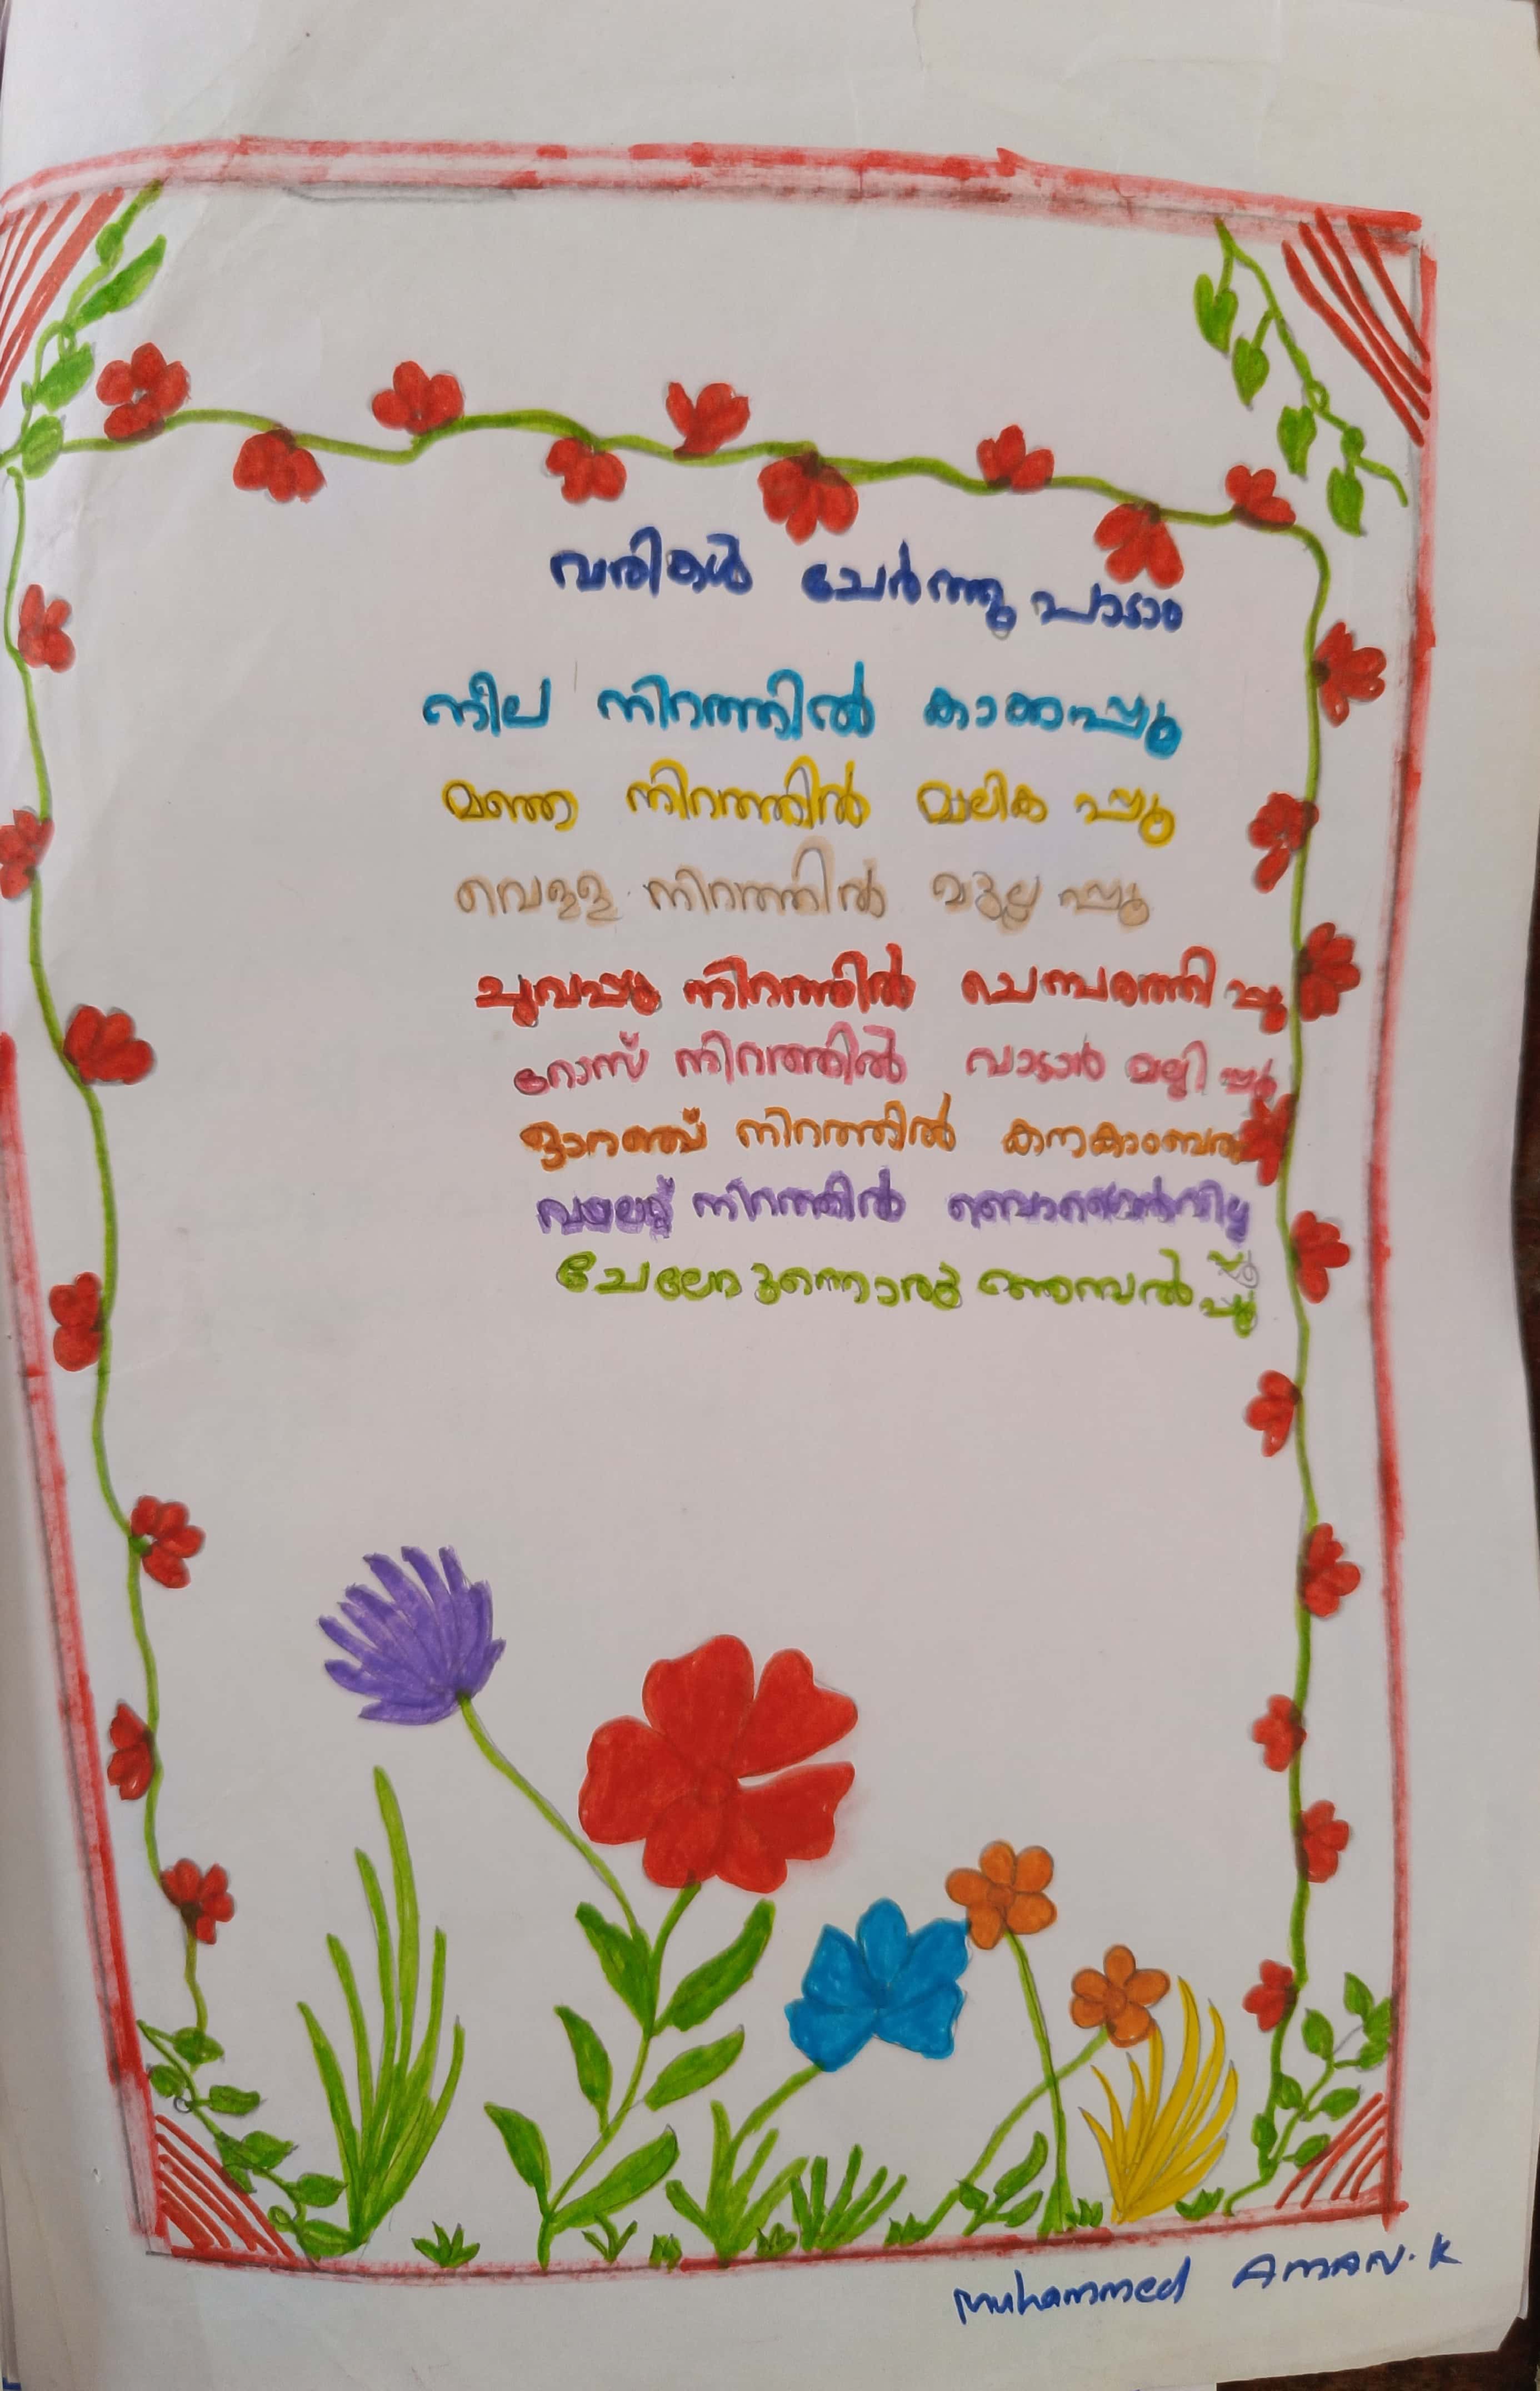 വരികൾ ചേർത്തു പാടാം
നീല നിറത്തിൽ കാക്കപ്പൂ
മഞ്ഞ നിറത്തിൽ മാലിക പ്പൂ
വെള്ള നിറത്തിൽ മുല്ല പ്പൂ
ചുവപ്പു നിറത്തിൽ ചെമ്പരത്തി പ്പൂ
റോസ് നിറത്തിൽ വാടാർ മല്ലി പ്പൂ
ഓറഞ്ച് നിറത്തിൽ കനകാംബരം
വയലറ്റ് നിറത്തിൽ ബൊഗൈൻവില്ല
ചേലേറുന്നൊരു ആമ്പൽ പ്പൂ
Muhammed Aman.K